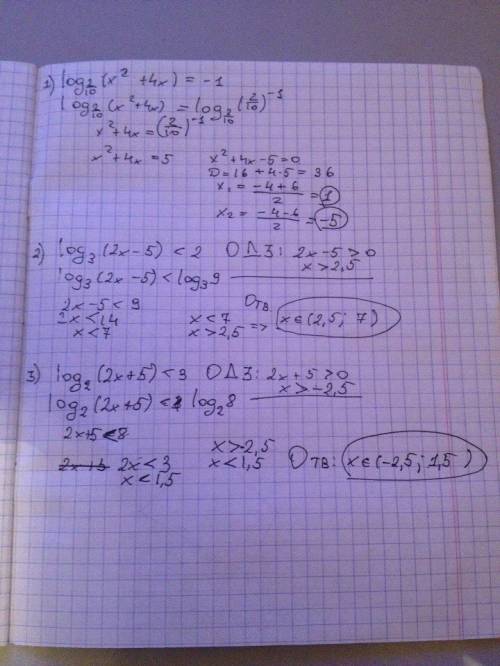 1) log_{2/10} (x² + 4x) = -1
log_{2/10} (x²+4x) = log_{2/10} (2/10)^{-1}
x² + 4x = (2/10)^{-1}
x² + 4x = 5
x²+4x-5=0
D=16 + 4·5 = 36
x₁ = (-4+6)/2 = 1
x₂ = (-4-6)/2 = -5
2) log₃ (2x-5) < 2 ОДЗ: 2x-5>0
x>2,5
log₃ (2x-5) < log₃9
2x-5<9
2x<14
x<7
x<7
x>2,5 =>
Отв
x∈(2,5; 7)
3) log₂ (2x+5) < 3 ОДЗ: 2x+5>0
x>-2,5
log₂ (2x+5) < log₂8
2x+5<8
2x<3
x<1,5
x>2,5
x<1,5
Отв: x∈(-2,5; 1,5)